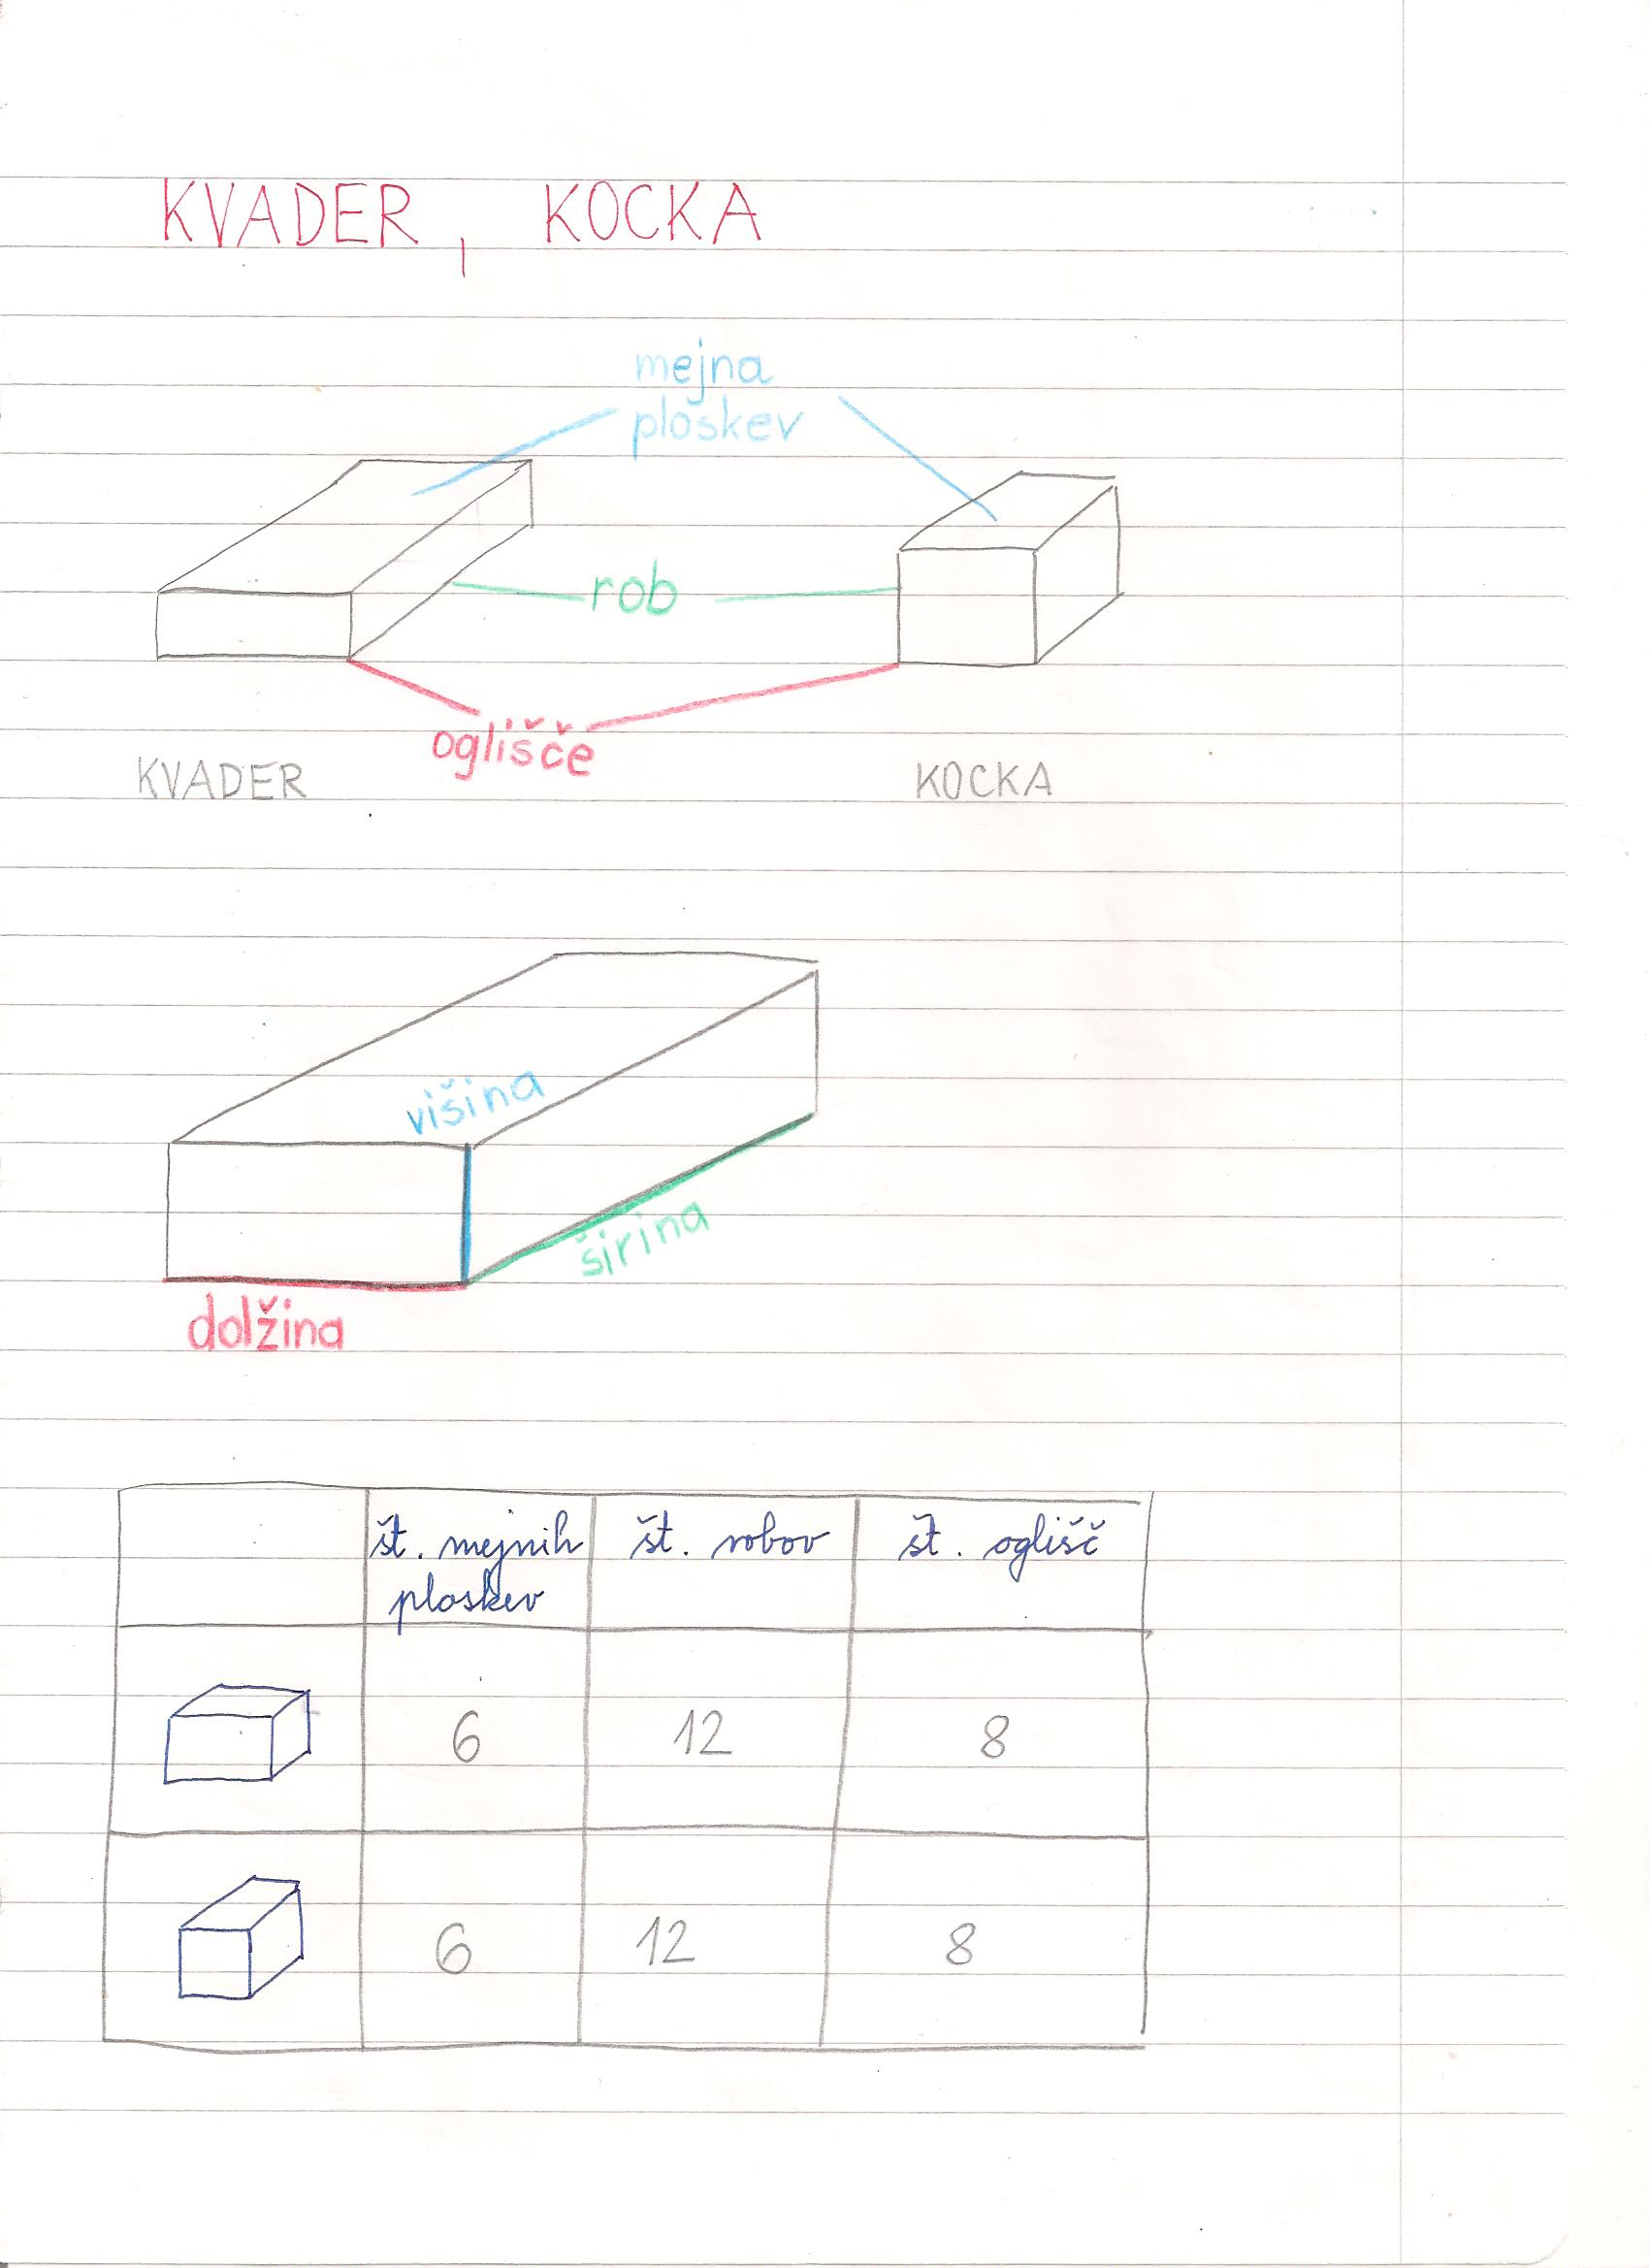 KVADER, KOCKA
mejna
ploskev
rob
oglišče
KVADER
KOCKA
višina
širina
dolžina
št. mejnih ploskev
št. robov
št. oglišč
6
12
8
6
12
8